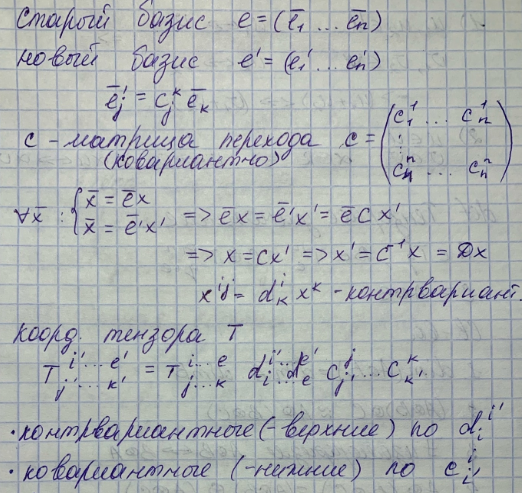 старый базис e = (ē₁ ... ēₙ)
новый базис e' = (e'₁ ... e'ₙ)
ē'ⱼ = cⱼᵏ ēₖ
C - матрица перехода C = (c₁¹ ... cₙ¹ ⋮ c₁ⁿ ... cₙⁿ)
(ковариантно)
∀x̄ : { x̄ = ēx
x̄ = ē'x' => ēx = ē'x' = ēCx'
=> x = Cx' => x' = C⁻¹x = Dx
x'ʲ = dₖʲ xᵏ - контрвариант.
коорд. тензора T
T^{i'...e'}_{j'...k'} = T^{i...e}_{j...k} d^{i'}_{i}...d^{e'}_{e} c^{j}_{j'} ... c^{k}_{k'}
• контрвариантные (- верхние) по d^{i'}_{i}
• ковариантные (- нижние) по c^{i}_{i'}